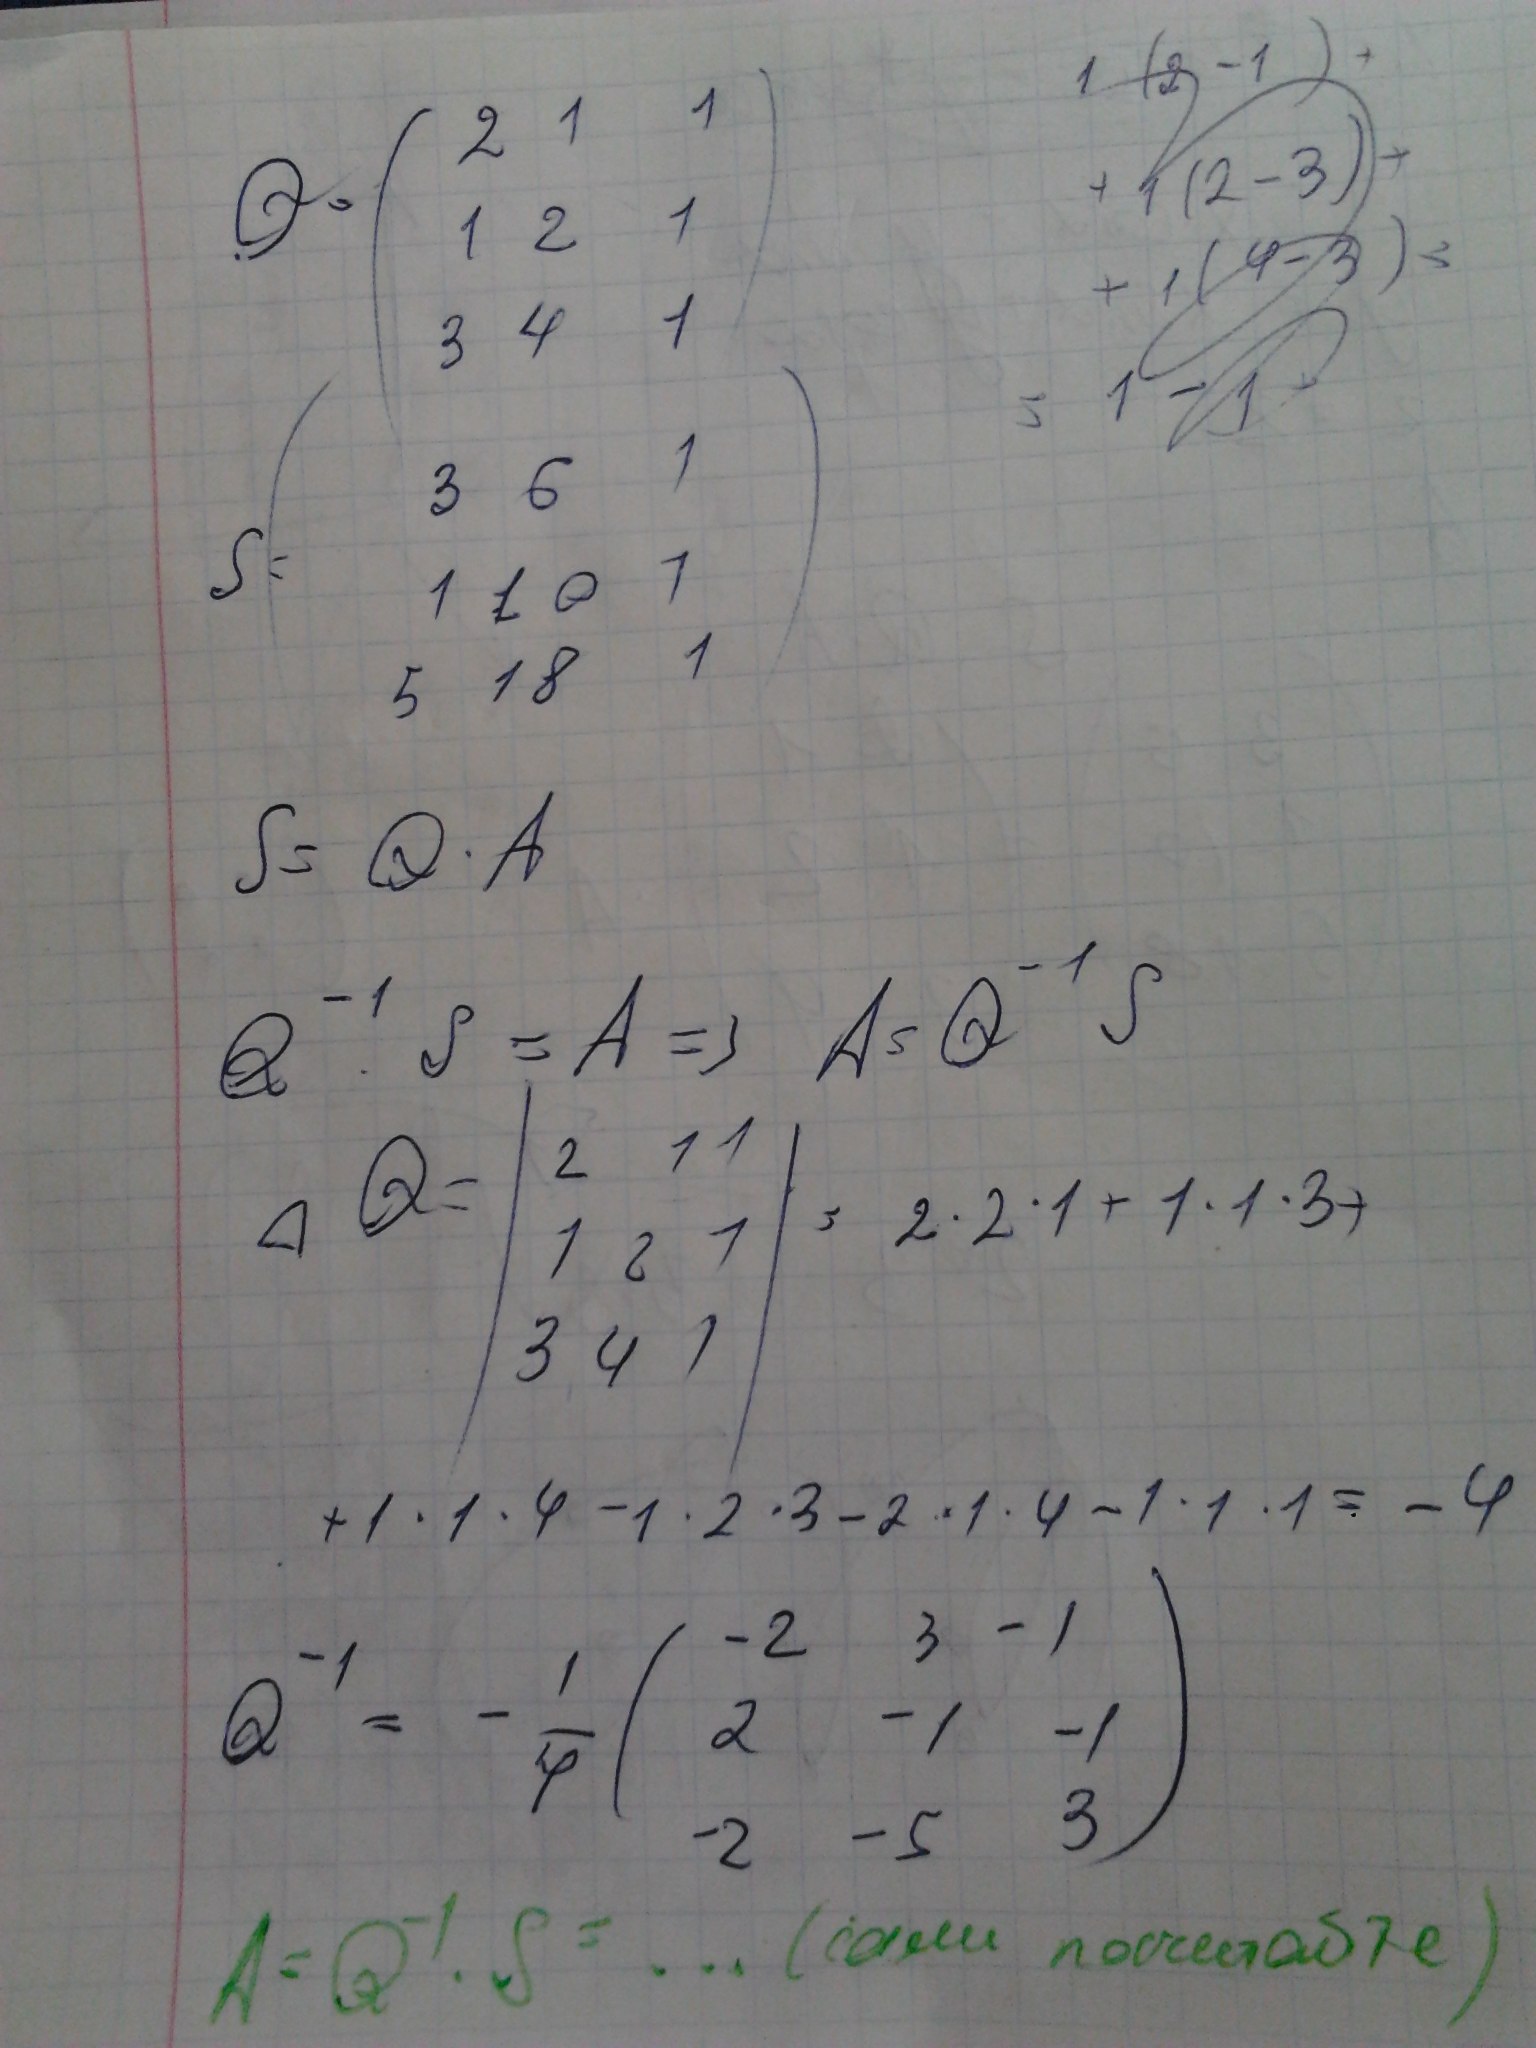 Q = ( 2 1 1
1 2 1
3 4 1 )
1 (2 - 1) +
+ 1 (2 - 3) +
+ 1 (4 - 3) =
= 1 - 1
S = ( 3 6 1
1 10 1
5 18 1 )
S = Q · A
Q^-1 · S = A => A = Q^-1 S
Δ Q = | 2 1 1
1 2 1
3 4 1 | = 2·2·1 + 1·1·3 +
+1·1·4 - 1·2·3 - 2·1·4 - 1·1·1 = -4
Q^-1 = - 1/4 ( -2 3 -1
2 -1 -1
-2 -5 3 )
A = Q^-1 · S = ... (сами посчитайте)